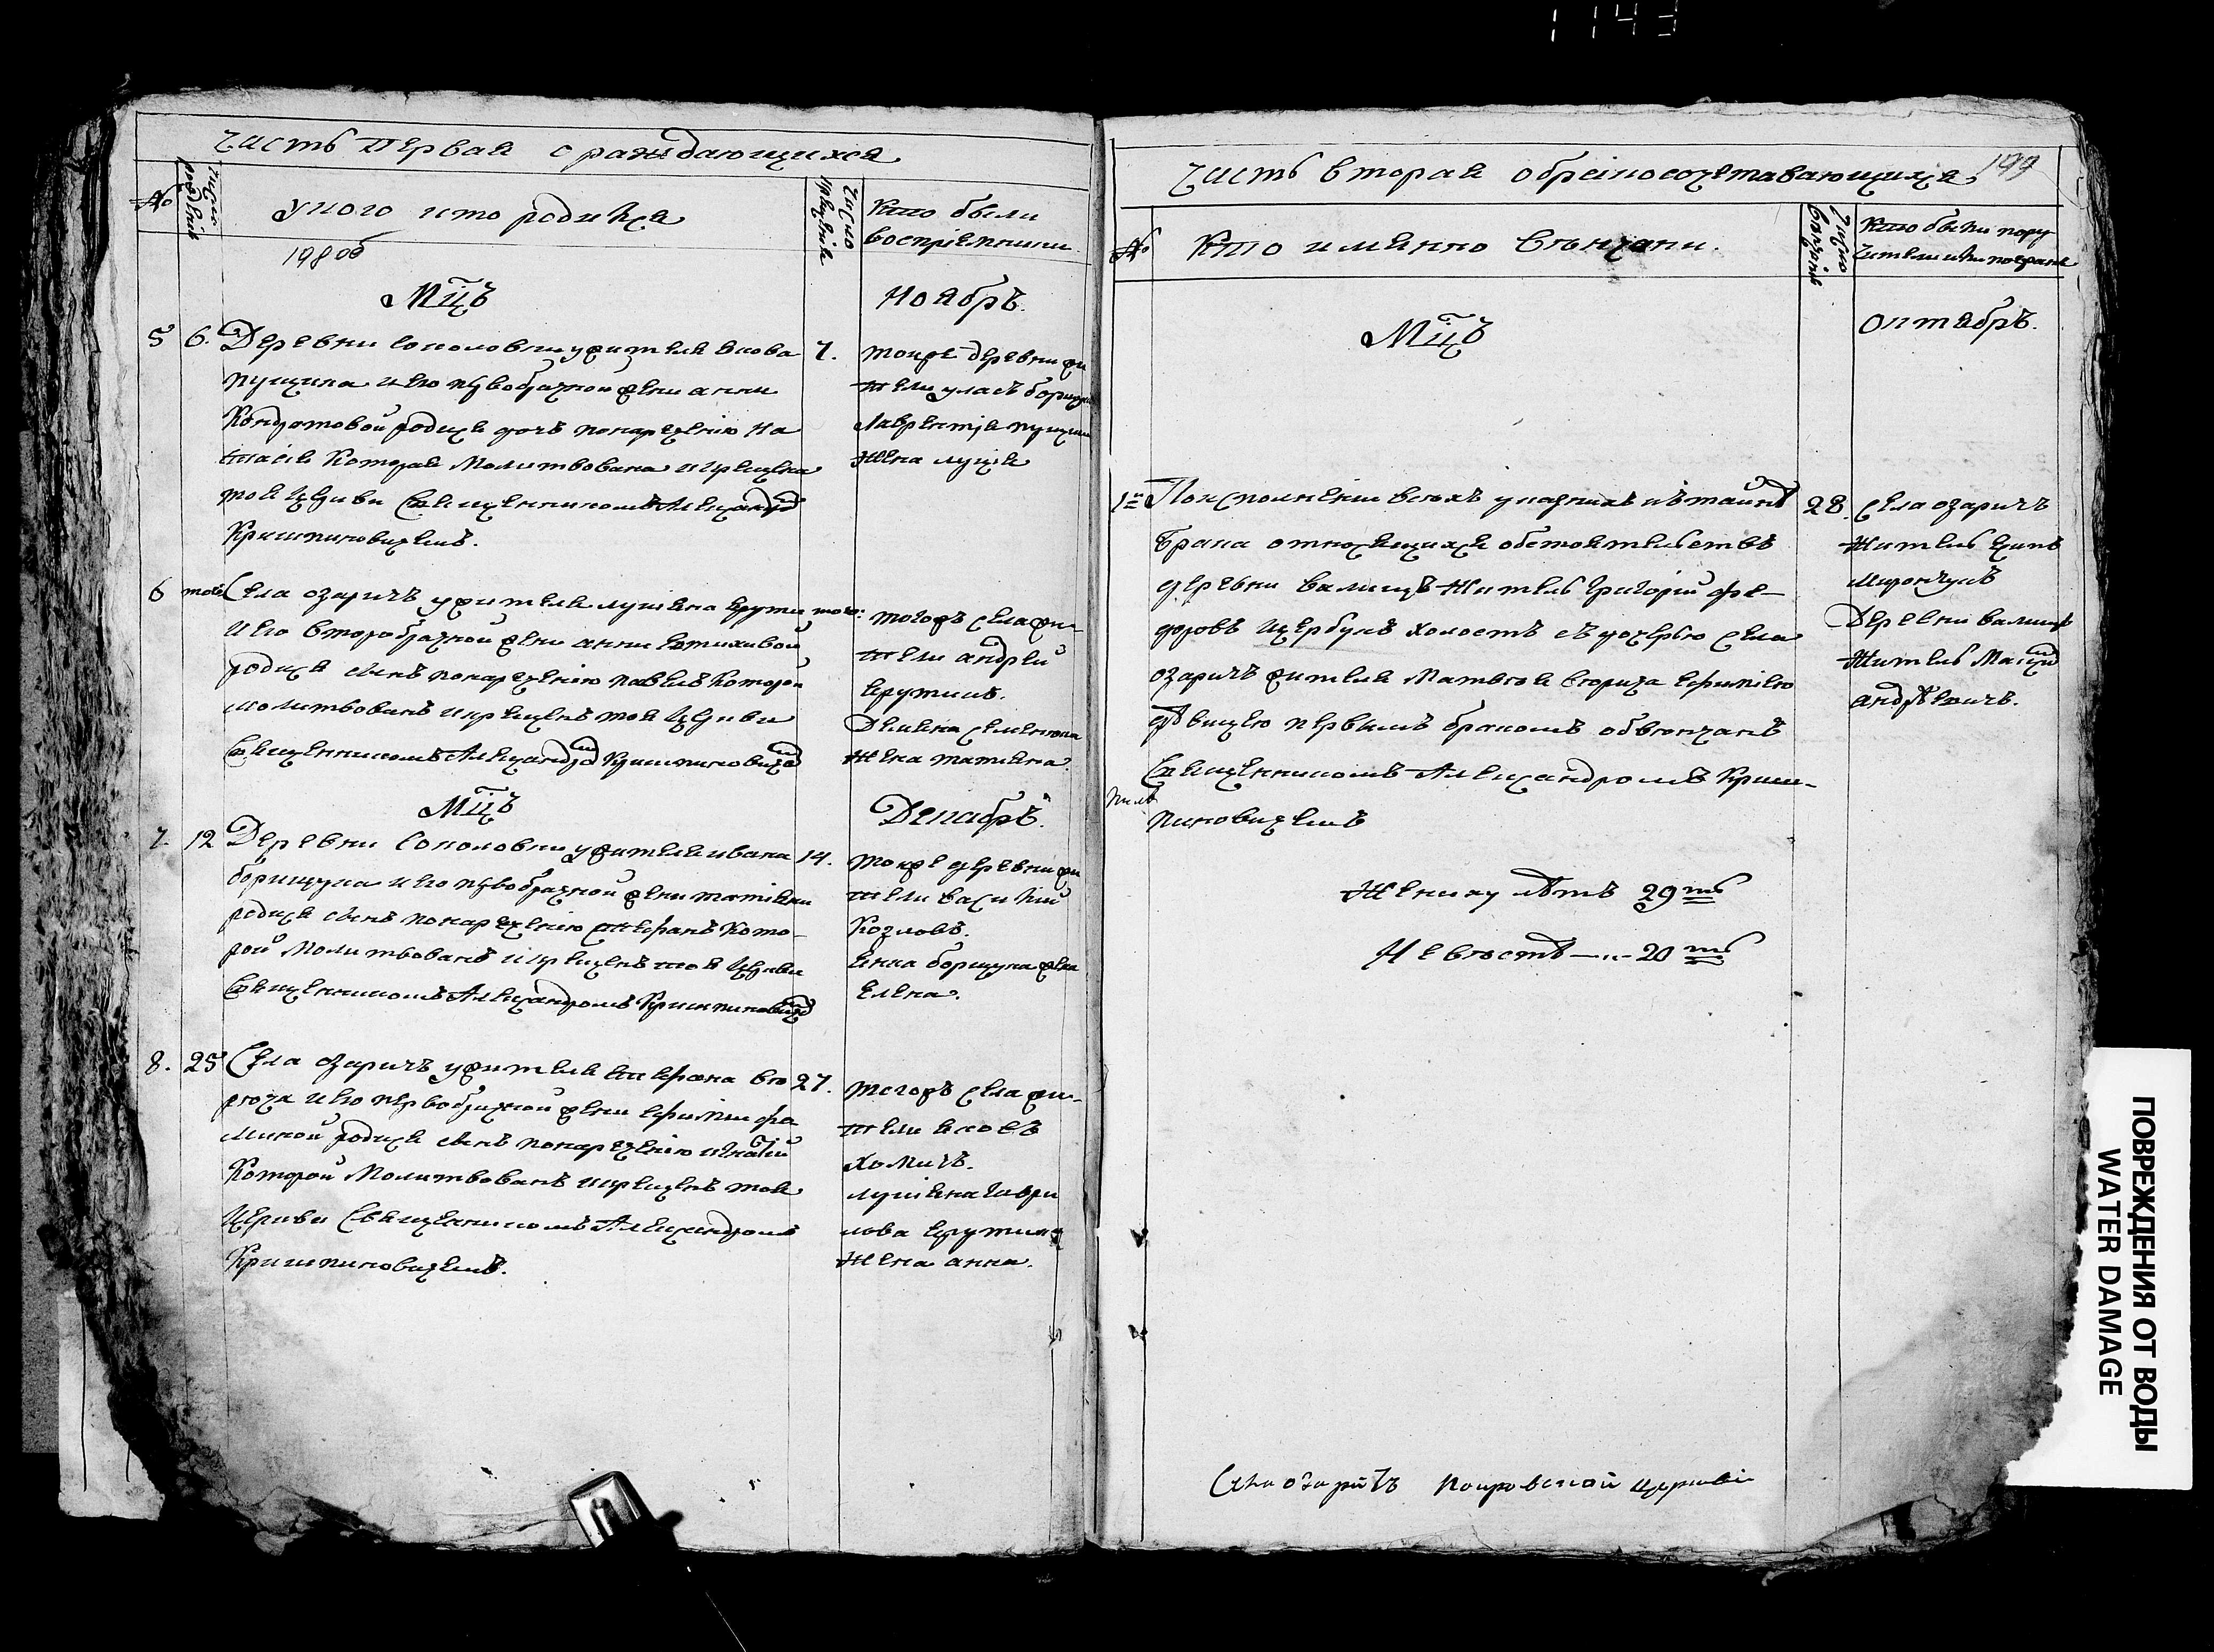 1143
Часть Первая о раждающихся
№
Число рожденія
У кого кто родился
Число крещенія
Кто были
воспріемники
198 об
Мцъ
Ноябрь.
5 6. Деревни Соколовки у жителя Якова
Пущика и его первобрачной жены Анны
Кондратовой родися дочь по наречению На
стасія которая молитвована и крещена
тоя церкви священникомъ Александромъ
Кришпиновичемъ.
7.
тоей же деревни жи
тели Уласъ Борищукъ
Лаврентія Пущика
жена Луція
6 того Села Озаричъ у жителя Лукіяна Ярути
и его второбрачной жены Анны
родися сынъ по наречению Павелъ которой
молитвованъ и крещенъ тоя церкви
священникомъ Александромъ Кришпиновичемъ
того:
того жъ села жи-
тели Андрей
Ярутичъ.
Демяна Семенюка
жена Татіяна.
Мцъ
Декабрь.
7. 12 Деревни Соколовки у жителя Ивана
Борищука и его первобрачной жены Татіяны
родися сынъ по наречению Стефанъ кото-
рой молитвованъ и крещенъ тоя церкви
священникомъ Александромъ Кришпиновичемъ
14.
той же деревни жи
тели Василій
Козловъ.
Борщука жена
Елена.
8. 25 Села Озаричъ у жителя Стефана Вю
рюча и его первобрачной жены Ефиміи Фо
миной родися сынъ по наречению Игнатій
которой молитвованъ и крещенъ тоя
церкви священникомъ Александромъ
Кришпиновичемъ.
27.
того жъ села жи-
тели Яковъ
Хомичъ.
Лукіяна Гаври
лова
жена Анна.
Часть вторая о бракосочетавающихся
199
№
Кто именно вѣнчаны.
Число вѣнчанія
Кто были пору
чители или поезжане
Мцъ
Октябрь.
1е По исполненіи всехъ указныхъ къ тайнѣ
брака относящихся обстоятельствъ
деревни Валищъ житель Григорій Фе-
доровъ Щербукъ холостъ съ дочерью села
Озаричъ жителя Матвея Ефимією
дѣвицею первымъ бракомъ обвенчанъ
священникомъ Александромъ Криш-
пиновичемъ
28.
Села Озаричъ
житель
Мирончукъ
Деревни Валищъ
житель
Андрѣевичъ.
Жениху лѣтъ 29ть
Невестѣ — „ — 20ть
Села Озаричъ Покровской церкви
ПОВРЕЖДЕНИЯ ОТ ВОДЫ
WATER DAMAGE